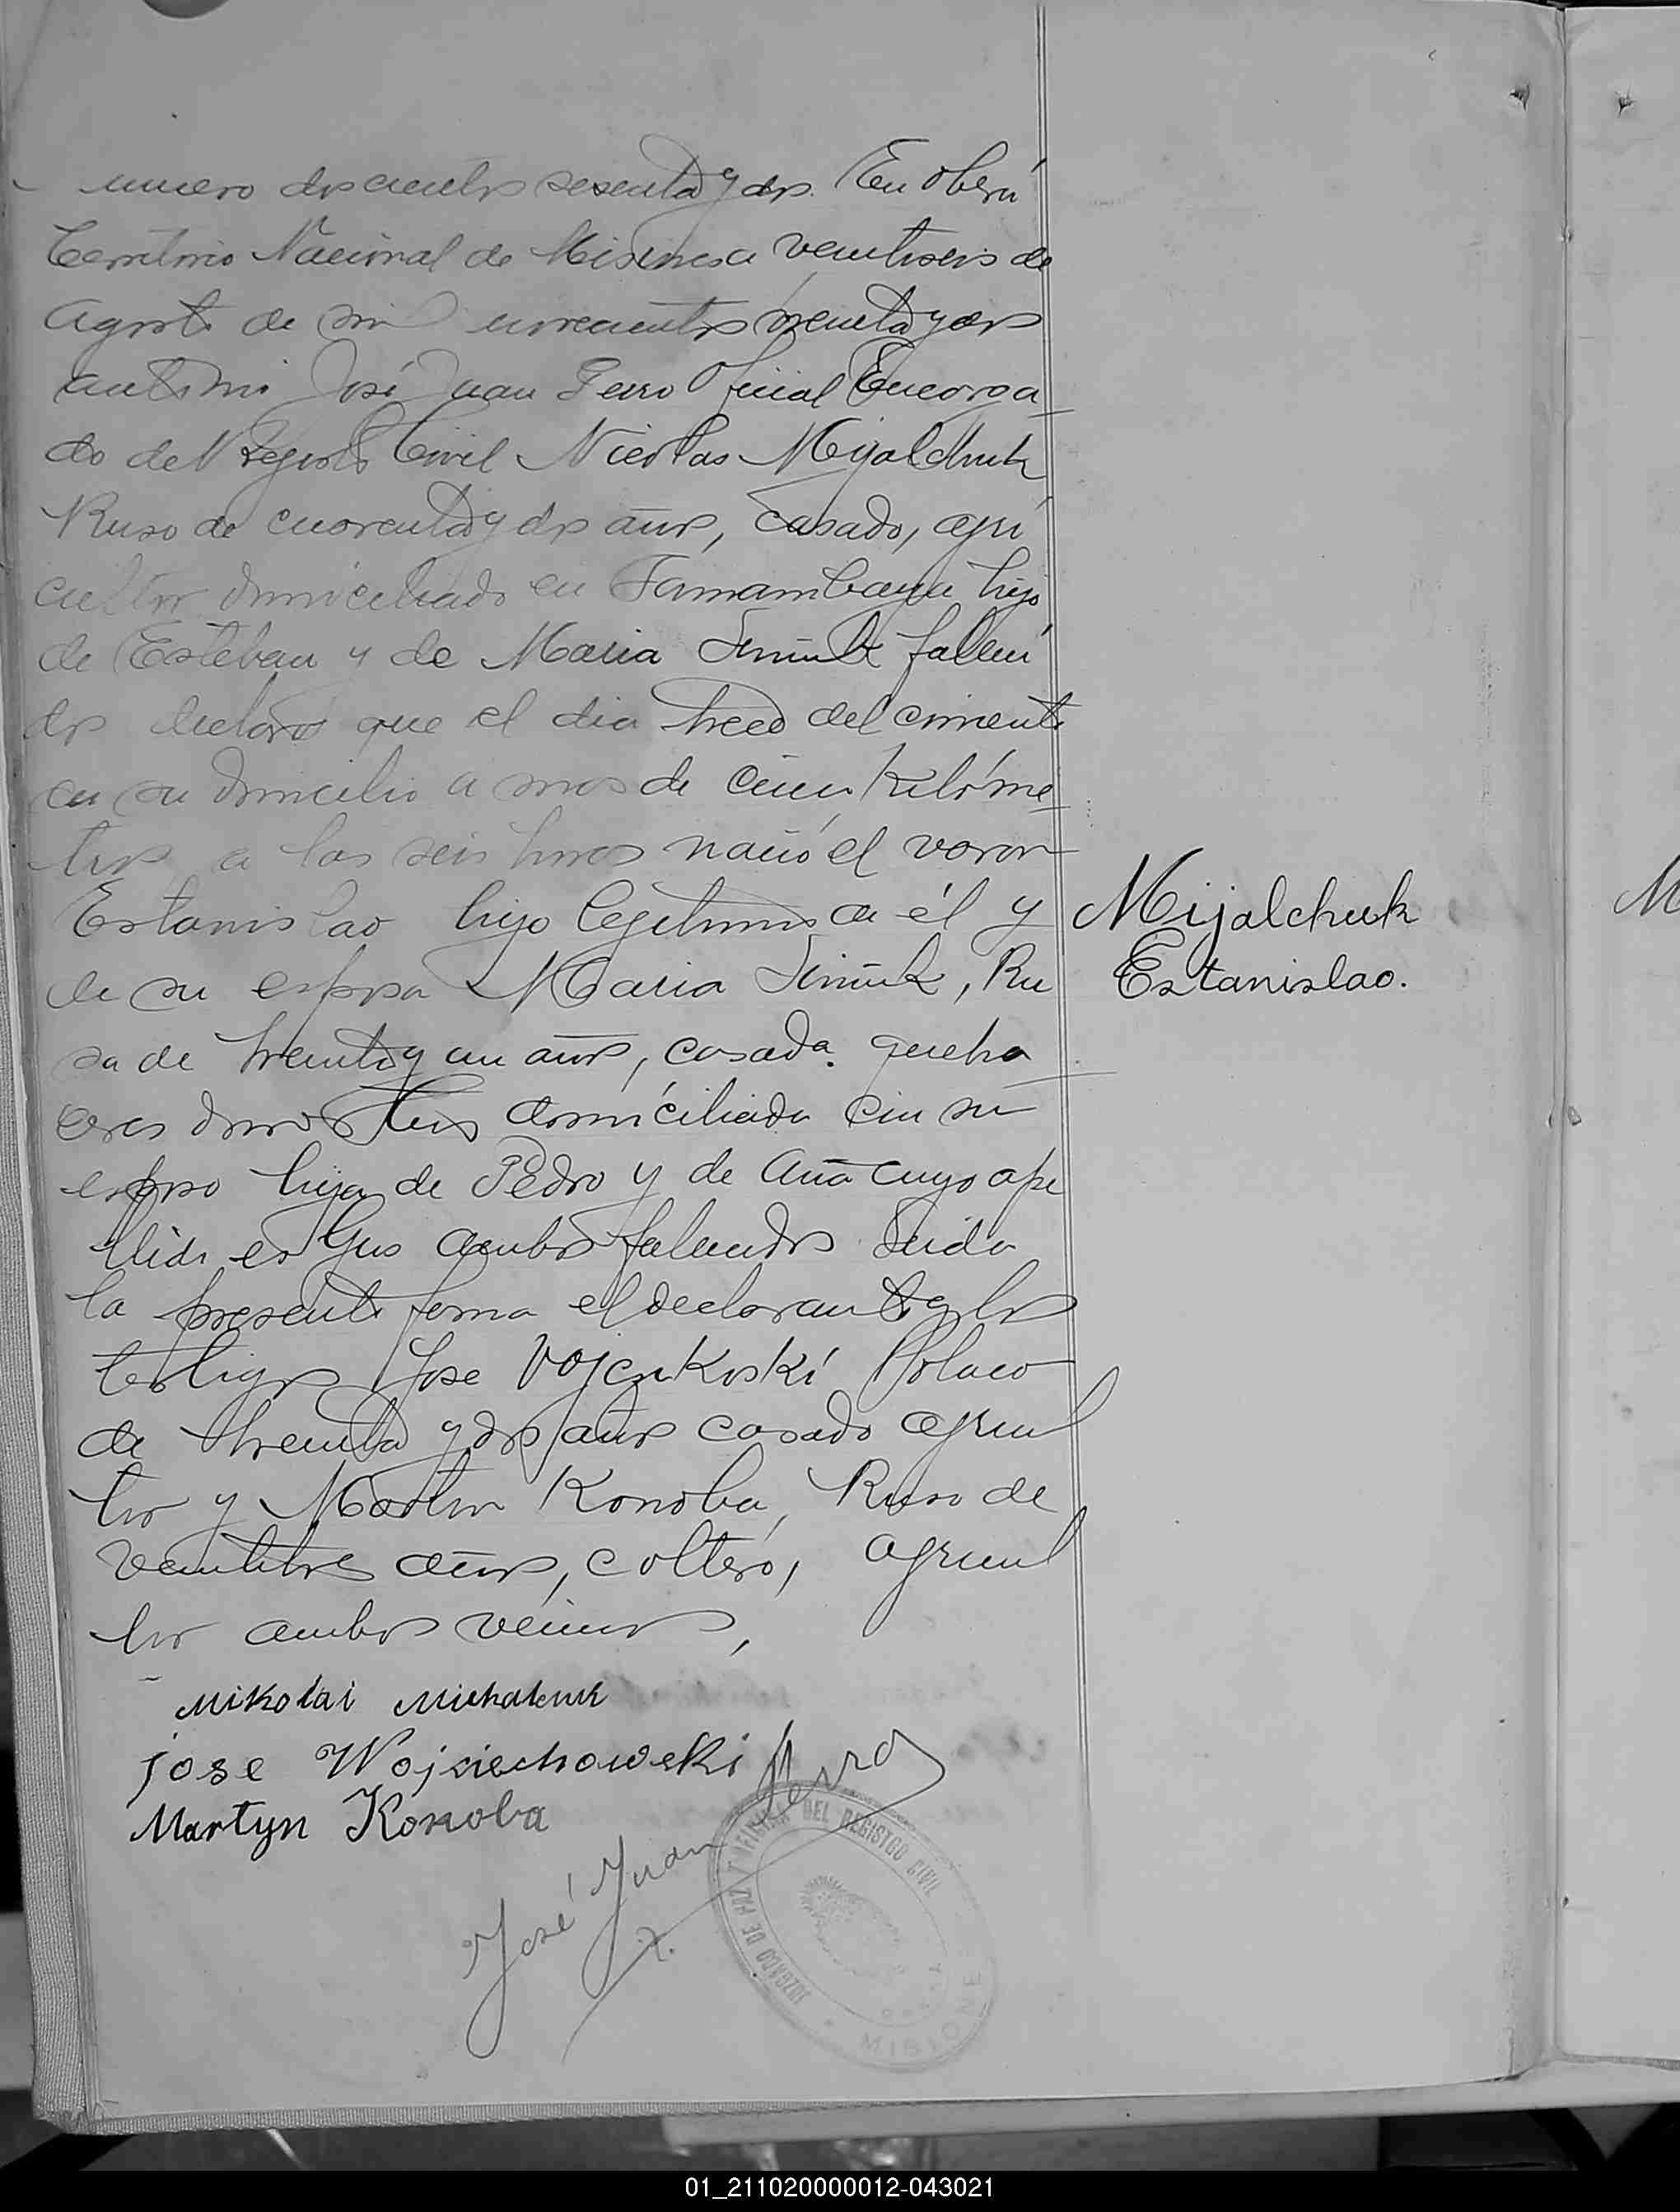 numero doscientos sesenta y dos. En Oberá
Territorio Nacional de Misiones a veintiseis de
Agosto de mil novecientos treinta y dos
ante mi José Juan Perro Oficial Encarga
do del Registro Civil Nicolas Mijalchuk
Ruso de cuarenta y dos años, casado, agri
cultor domiciliado en Tamambaya hijo
de Esteban y de Maria falleci
dos declaró que el dia trece del corriente
en su domicilio a mas de cinco Kilóme
tros a las seis horas nació el varon
Estanislao hijo legitimo de él y
de su esposa Maria , Ru
sa de treinta y un años, casada. queha
ceres domesticos domiciliada con su
esposo hija de Pedro y de Ana cuyo ape
llido es ambos fallecidos Leida
la presente firma el declarante y los
testigos Jose Vojcukoski Polaco
de treinta y dos años casado agricul
tor y Martin Konoba, Ruso de
veintitres años, soltero, agricul
tor ambos vecinos,
Mijalchuk
Estanislao.
Mikolai Michalczuk
jose Wojciechowski
Martyn Konoba
José Juan Perro
JUZGADO DE PAZ Y OFICINA DEL REGISTRO CIVIL
MISIONES
01_211020000012-043021